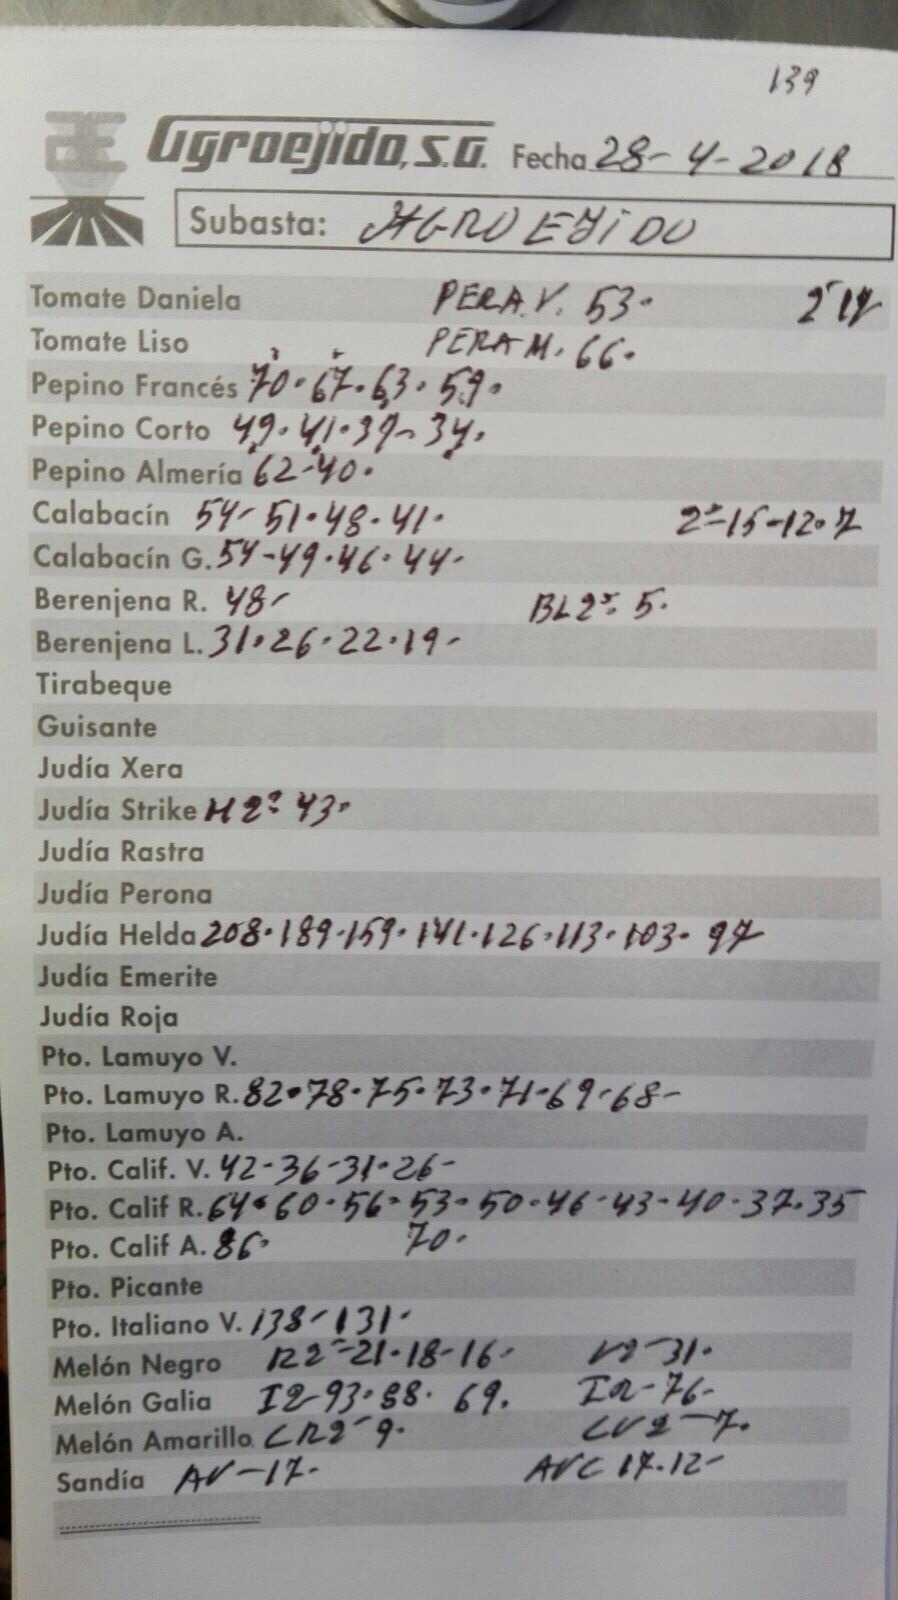 139
Agroejido, S.A. Fecha 28-4-2018
Subasta: AGROEJIDO
Tomate Daniela PERA.V. 53.
Tomate Liso PERA M. 66.
Pepino Francés 70.67.63.59.
Pepino Corto 49.41.37-34.
Pepino Almería 62-40.
Calabacín 54-51.48.41. 2ª-15-12.7
Calabacín G. 54-49.46.44-
Berenjena R. 48- BL2ª. 5.
Berenjena L. 31.26.22.19-
Tirabeque
Guisante
Judía Xera
Judía Strike H 2ª 43.
Judía Rastra
Judía Perona
Judía Helda 208.189.159.141.126.113.103.97
Judía Emerite
Judía Roja
Pto. Lamuyo V.
Pto. Lamuyo R. 82.78.75.73.71.69-68-
Pto. Lamuyo A.
Pto. Calif. V. 42-36-31.26-
Pto. Calif R. 64.60.56-53.50.46-43-40.37.35
Pto. Calif A. 86. 70.
Pto. Picante
Pto. Italiano V. 138-131.
Melón Negro R2-21.18-16. V2-31.
Melón Galia I2-93.88. 69. 76-
Melón Amarillo CR2-9. CV2-7.
Sandía AV-17. AVC 17.12-